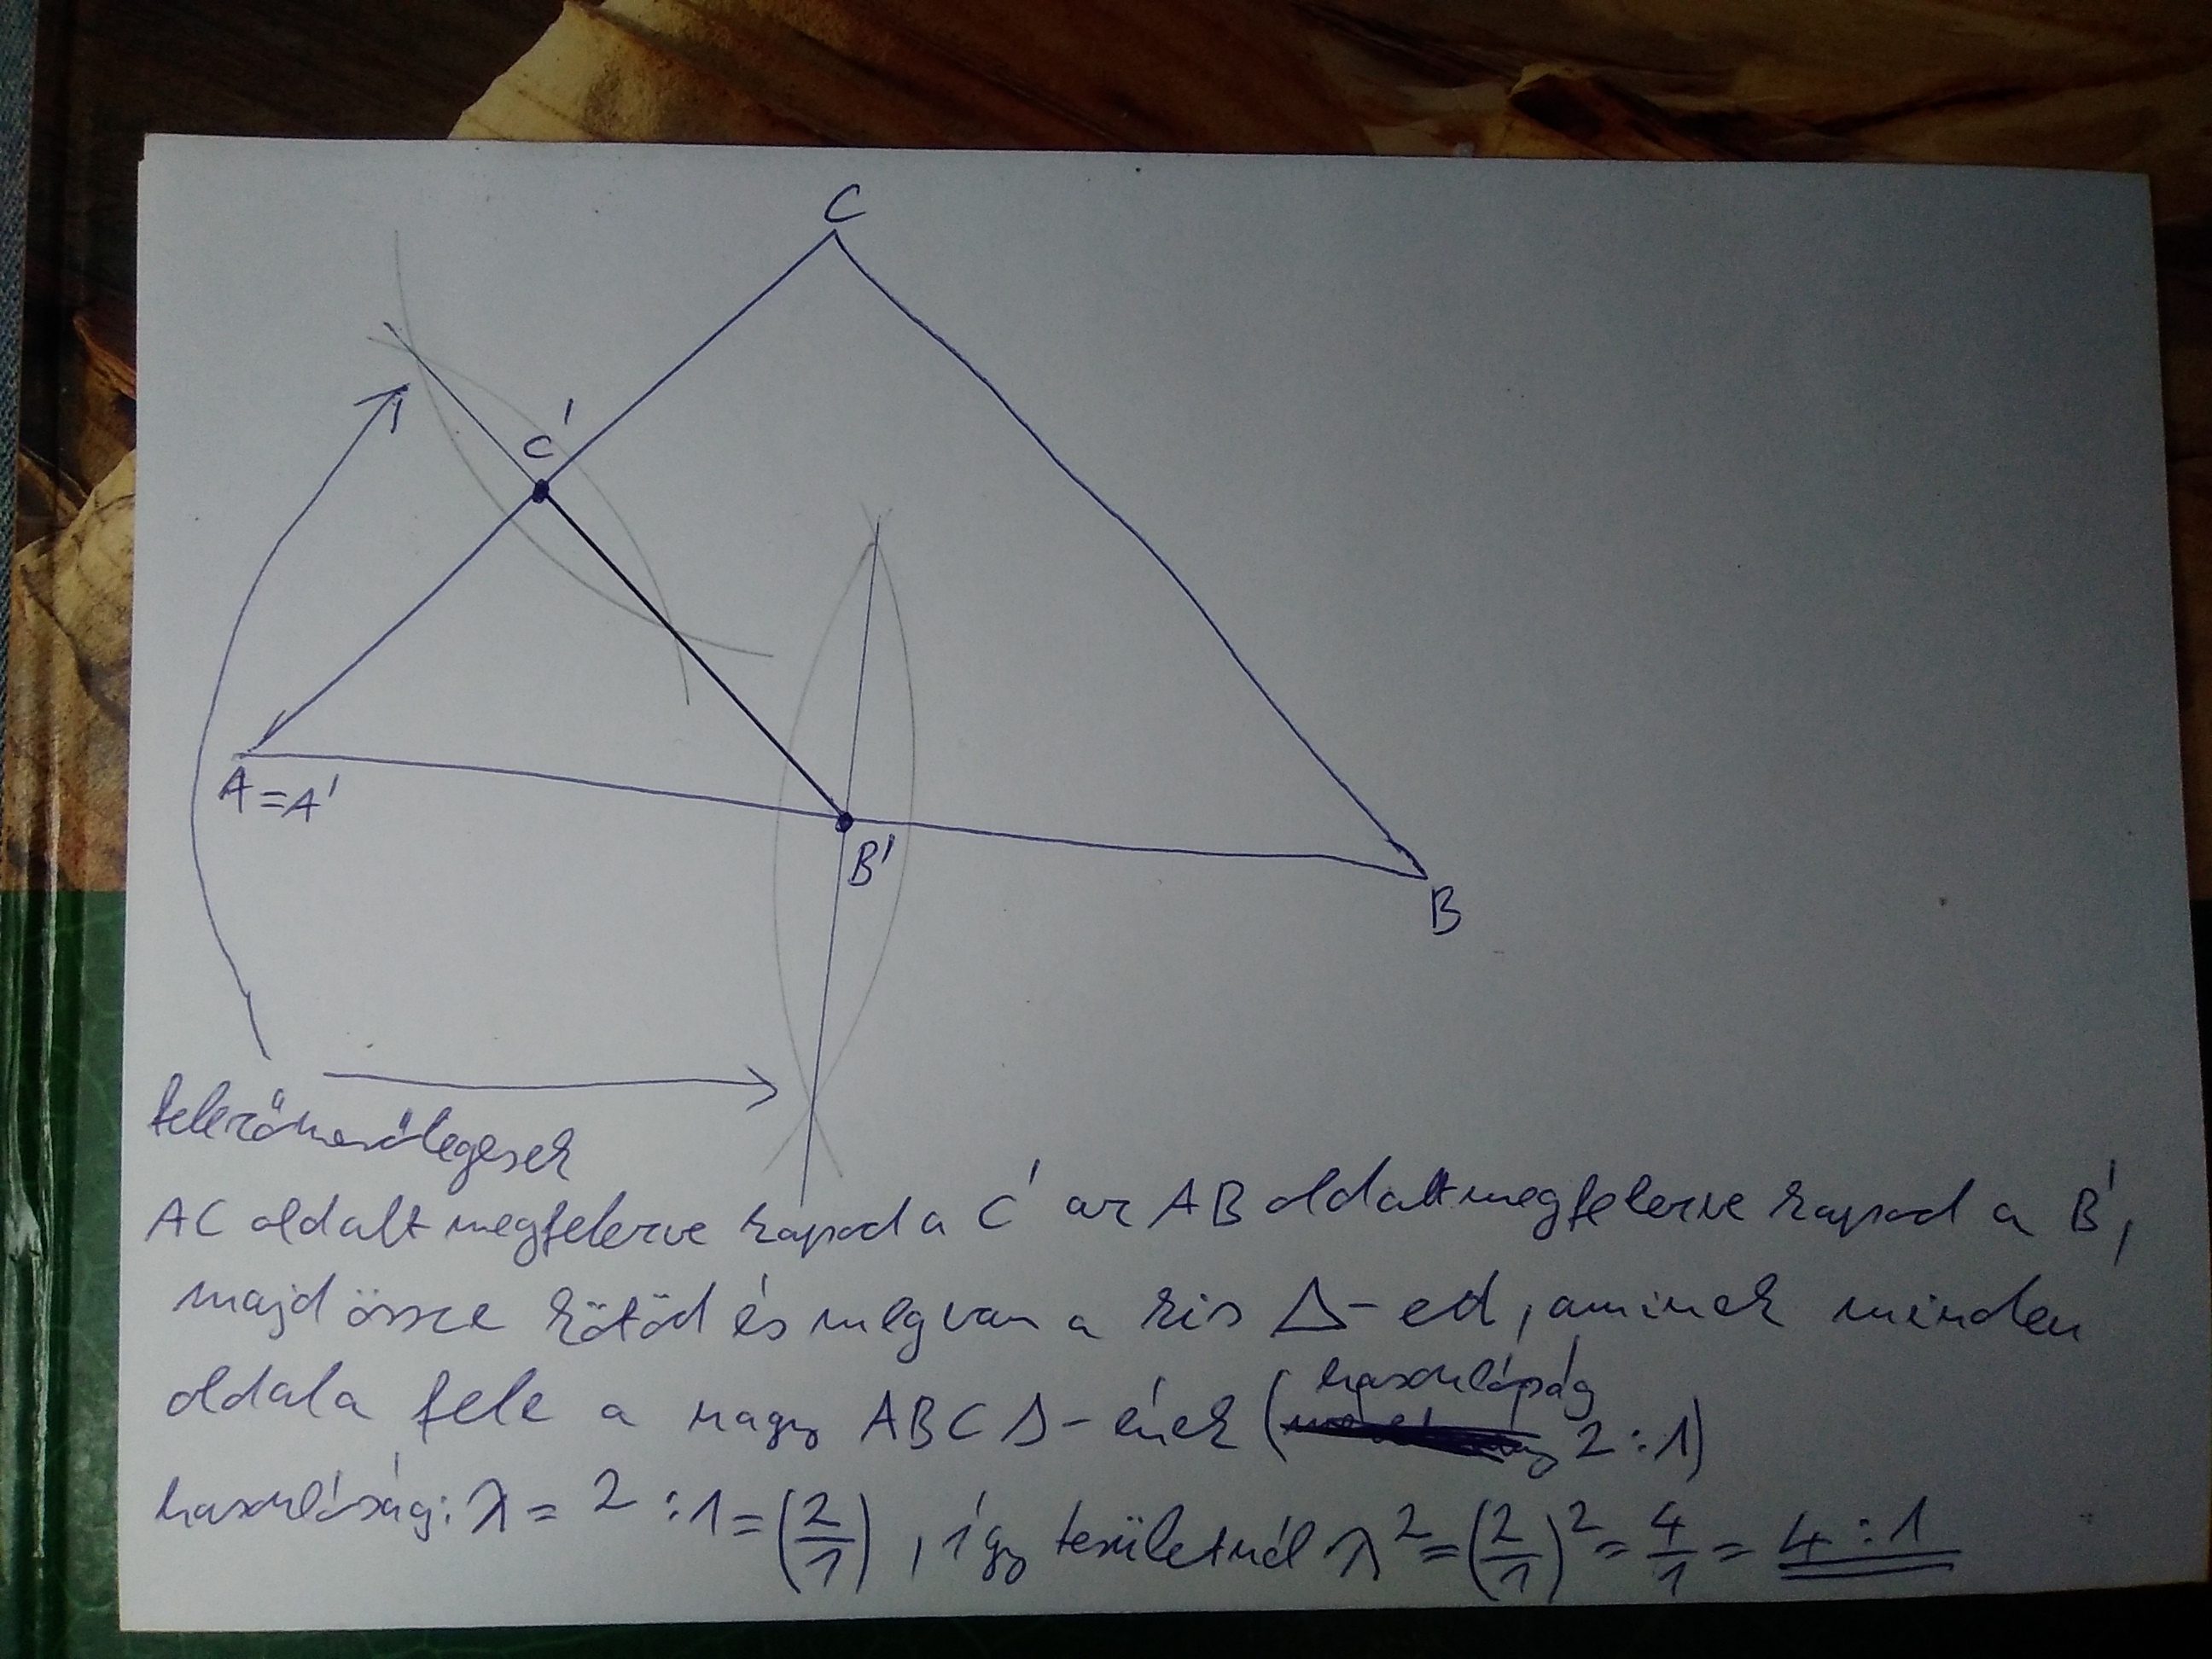 C
C'
A=A'
B'
B
felezőmerőlegesek
AC oldalt megfelezve kapod a C' az AB oldalt megfelezve kapod a B',
majd össze kötöd és megvan a kis Δ-ed, aminek minden
oldala fele a nagy ABC Δ-ének (hasonlóság 2:1)
hasonlóság: λ = 2 :1 = (2/1), így területnél λ² = (2/1)² = 4/1 = 4:1